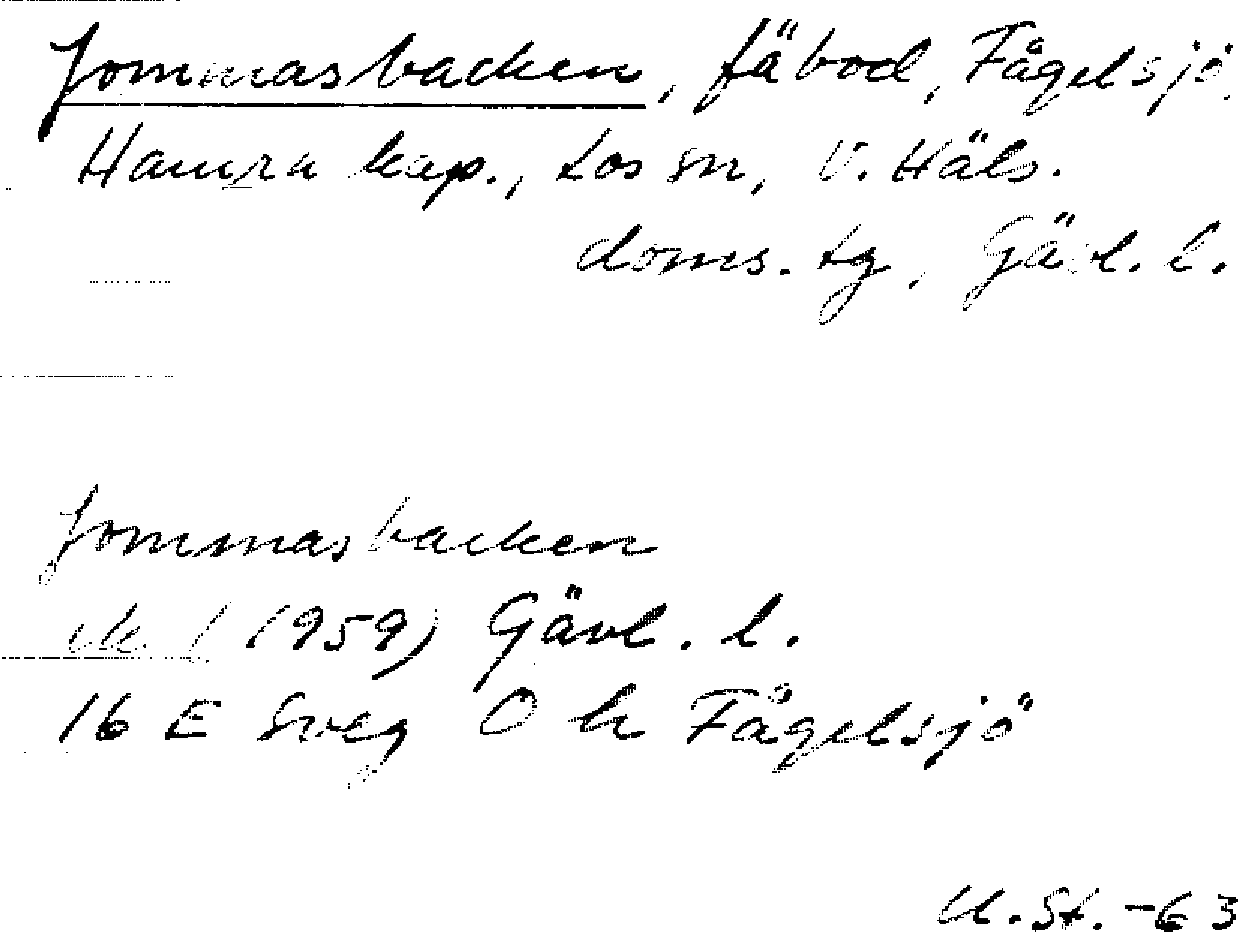 Jommasbacken, fäbod, Fågelsjö,
Hamra kap., Los sn, V. Häls.
doms. tg, Gävl. l.
Jommasbacken
ek. (1959) Gävl. l.
16 E Sveg O h Fågelsjö
U. St. -63